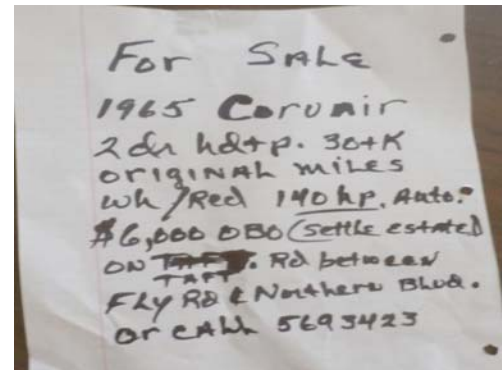 For SALE
1965 Corvair
2 dr hdtp. 30+K
original miles
wh/Red 140 hp. Auto.
$6,000 OBO (settle estate)
ON TAFT. Rd between
TAFT
Fly Rd & Northern Blvd.
or call 5693423